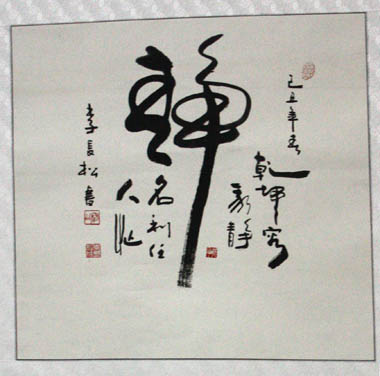 己丑年春
乾坤容
我静
静
名利任
人忙
李長松書